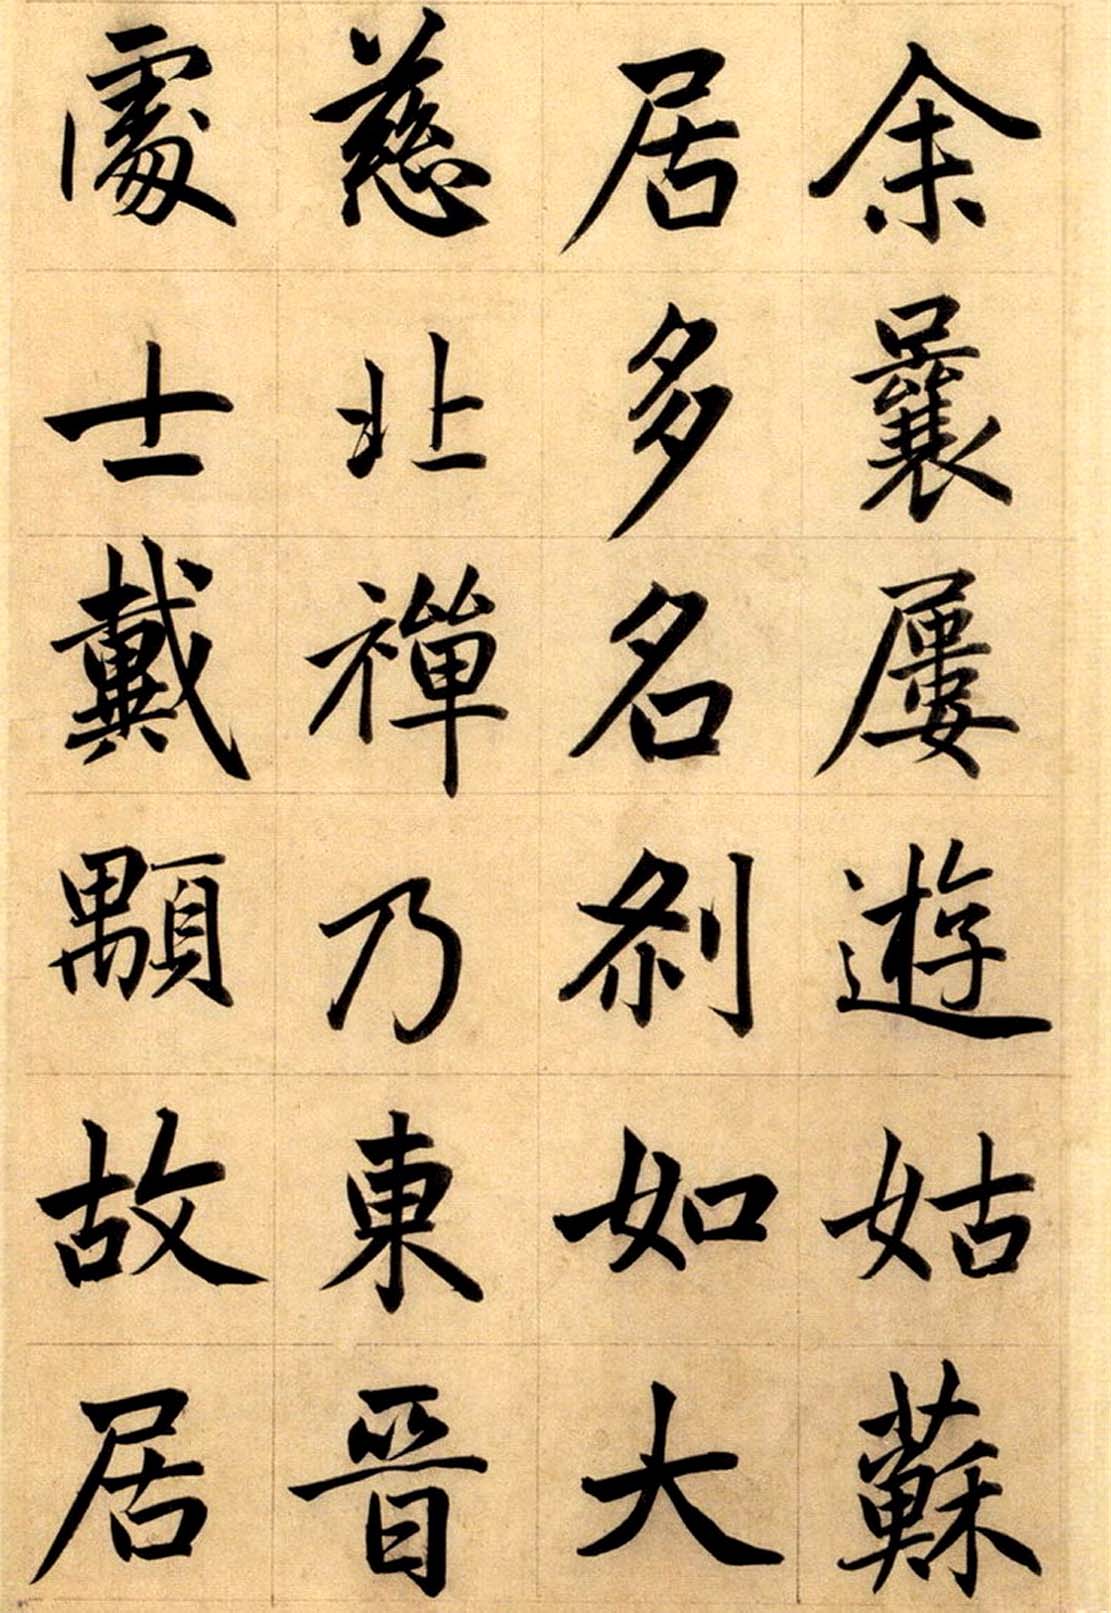 余曩屢遊姑蘇
居多名刹如大
慈北禪乃東晉
處士戴顒故居